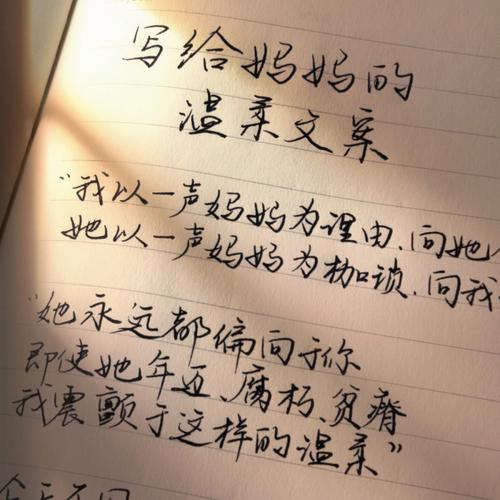 写给妈妈的
温柔文案
“我以一声妈妈为理由、向她
她以一声妈妈为枷锁、向我
“她永远都偏向于你
即使她年迈、腐朽、贫瘠
我震颤于这样的温柔”